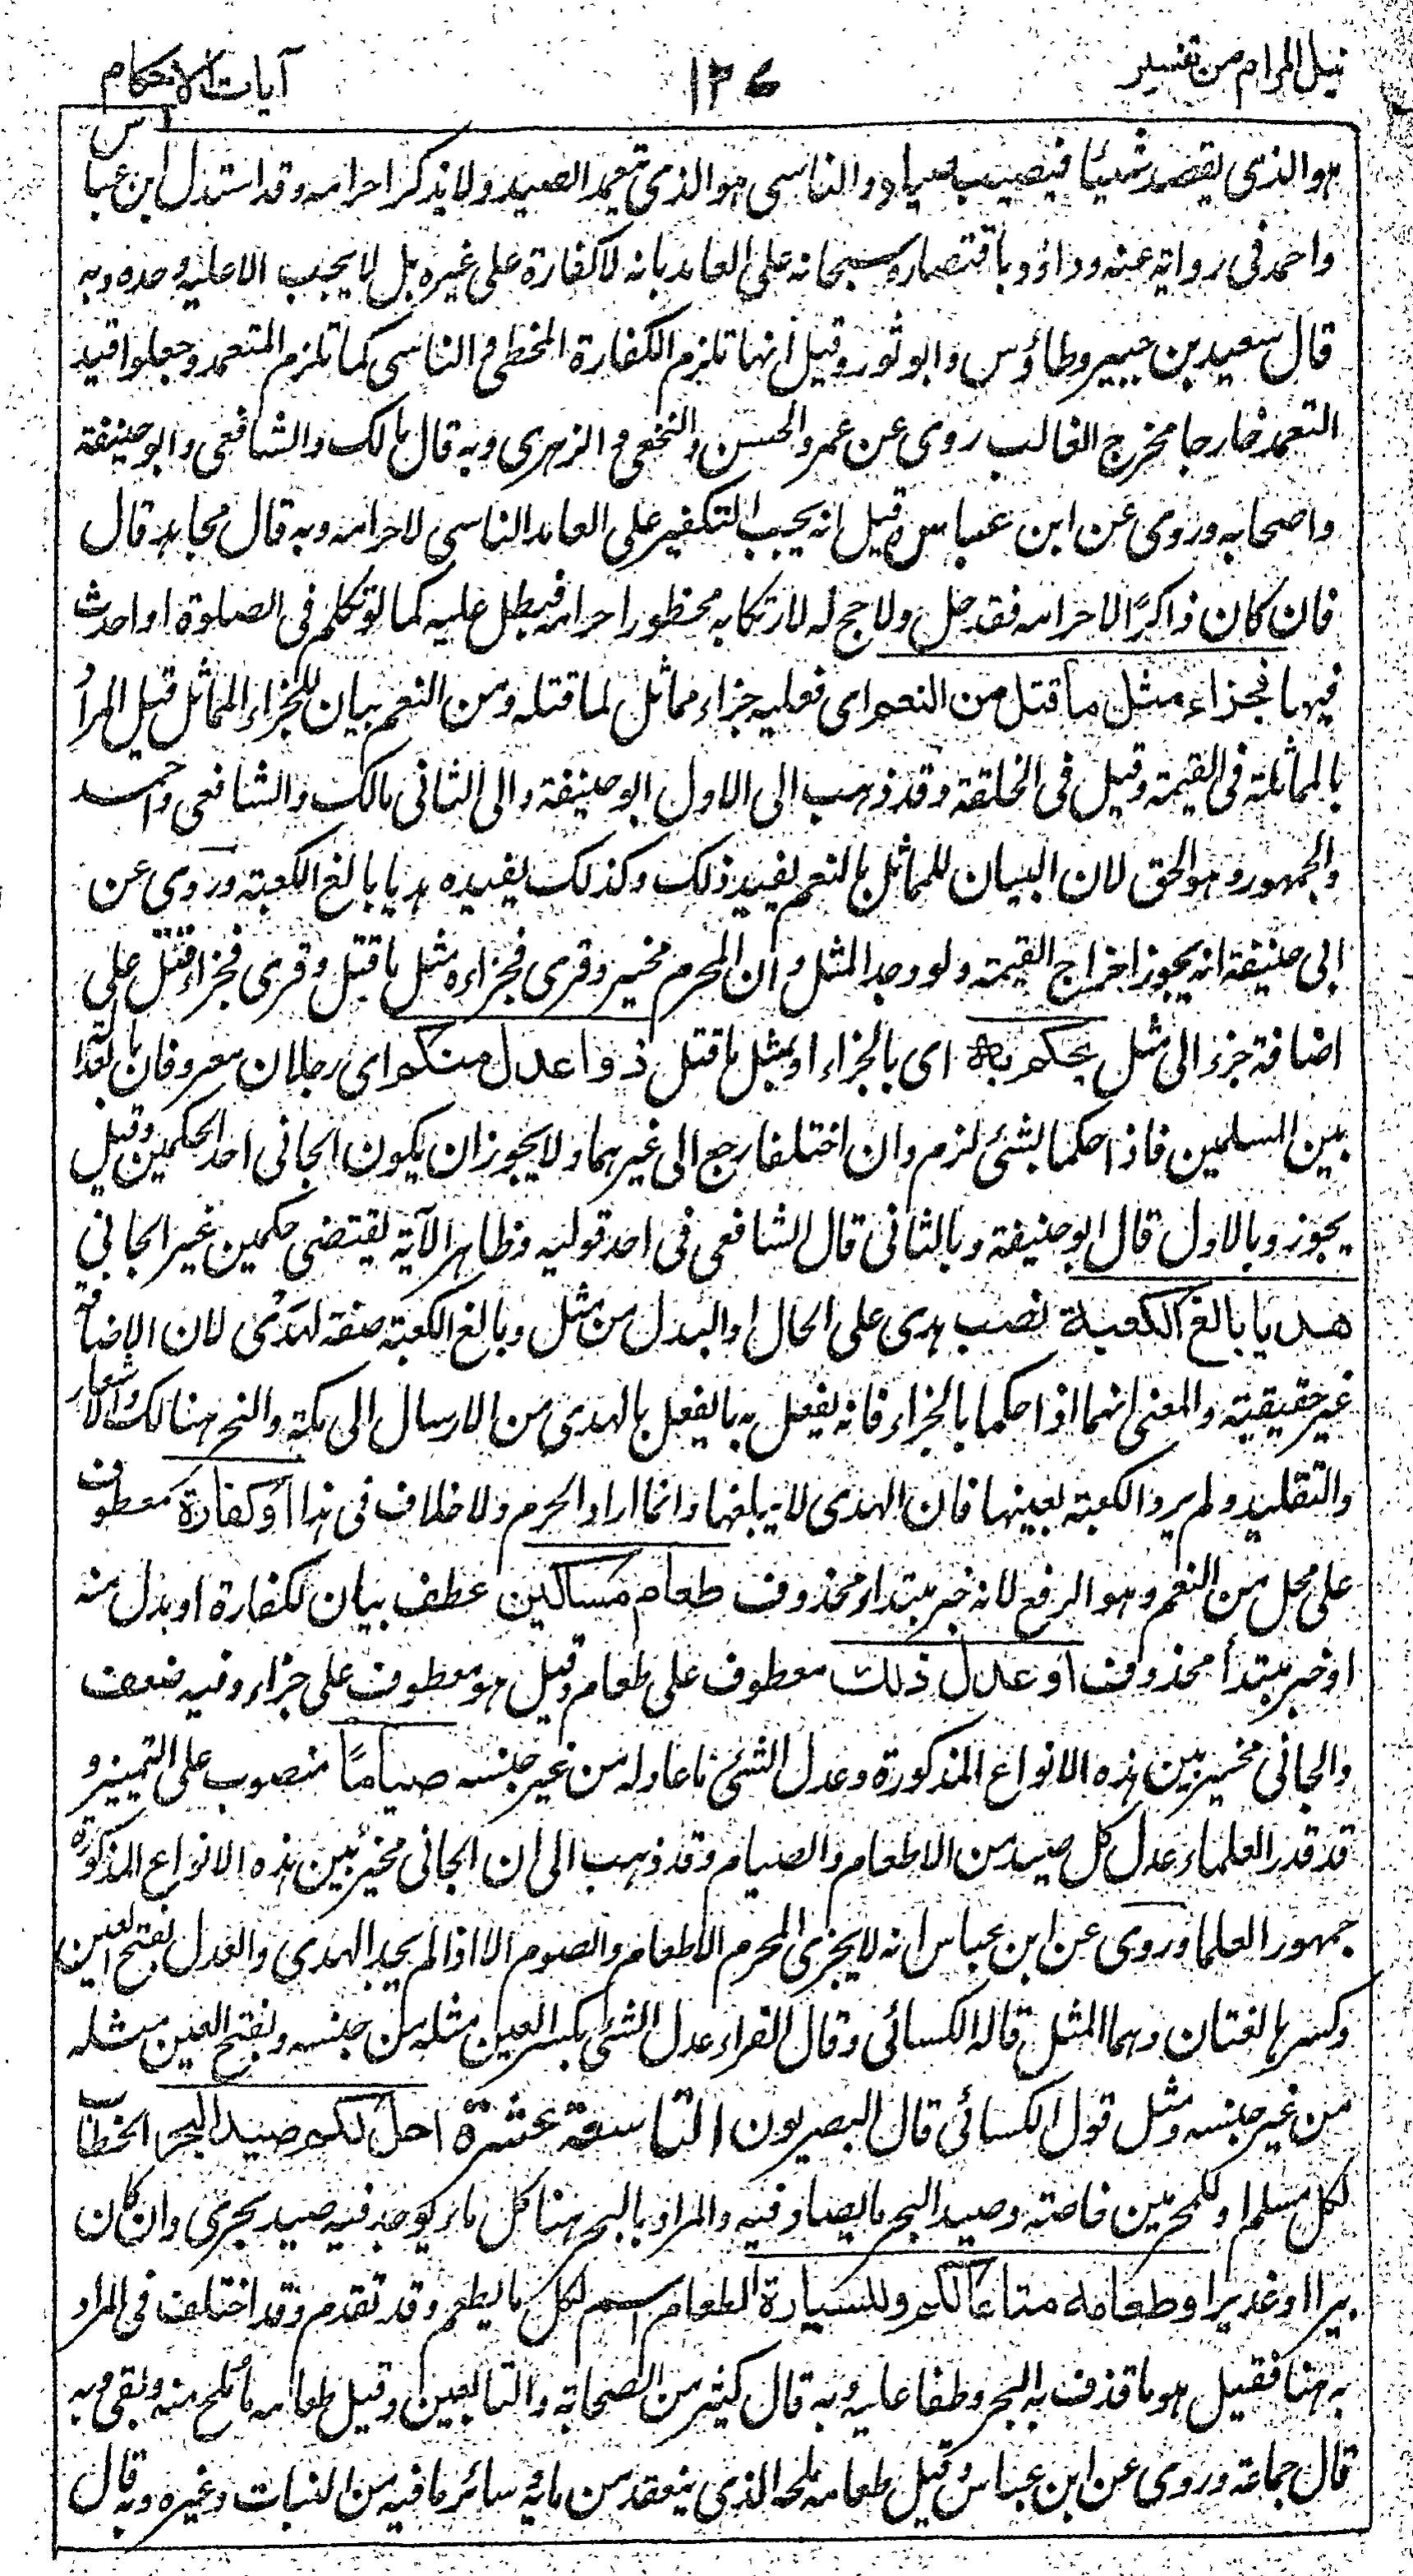 نيل المرام من تفسير ١٣٤ آيات الاحكام
هو الذى يقصد شيئا فيصيب صيدا والناسى هو الذى يتعمد الصيد ولا يذكر احرامه وقد استدل ابن عباس
واحمد فى رواية عنه وداؤد باقتصاره سبحانه على العامد بانه لا كفارة على غيره بل لا يجب الا عليه وحده وبه
قال سعيد بن جبير وطاؤس وابو ثور وقيل انها تلزم الكفارة المخطى والناسى كما تلزم المتعمد وجعلوا قيد
التعمد خارجا مخرج الغالب روى عن عمر والحسن والنخعى والزهرى وبه قال مالك والشافعى وابو حنيفة
واصحابه وروى عن ابن عباس وقيل انه يجب التكفير على العامد الناسى لاحرامه وبه قال مجاهد قال
فان كان ذاكرًا لاحرامه فقد حل ولا حج له لارتكابه محظور احرامه فبطل عليه كما لو تكلم فى الصلوة او احدث
فيها فجزاء مثل ما قتل من النعم اى فعليه جزاء مماثل لما قتله ومن النعم بيان للجزاء المماثل قيل المراد
بالمماثلة فى القيمة وقيل فى الخلقة وقد ذهب الى الاول ابو حنيفة والى الثانى مالك والشافعى واحمد
والجمهور وهو الحق لان البيان للمماثل بالنعم يفيد ذلك وكذلك يفيده هديا بالغ الكعبة وروى عن
ابى حنيفة انه يجوز اخراج القيمة ولو وجد المثل وان المحرم مخير وقرى فجزاءه مثل ما قتل وقرى فجزاء مثل على
اضافة جزء الى مثل يحكم به اى بالجزاء او بمثل ما قتل ذوا عدل منكم اى رجلان معروفان بالعدالة
بين المسلمين فاذا حكما بشئ لزم وان اختلفا رجع الى غيرهما ولا يجوز ان يكون الجانى احد الحكمين وقيل
يجوز وبالاول قال ابو حنيفة وبالثانى قال الشافعى فى احد قوليه وظاهر الآية يقتضى حكمين غير الجانى
هديا بالغ الكعبة نصب هدى على الحال او البدل من مثل وبالغ الكعبة صفة لهَدْى لان الاضافة
غير حقيقية والمعنى انهما اذا حكما بالجزاء فانه يفعل به ما يفعل بالهدى من الارسال الى مكة والنحر هنالك والاشعار
والتقليد ولم يرد الكعبة بعينها فان الهدى لا يبلغها وانما اراد الحرم ولا خلاف فى هذا او كفارة معطوف
على محل من النعم وهو الرفع لانه خبر مبتداء محذوف طعام مساكين عطف بيان لكفارة او بدل منه
او خبر مبتدأ محذوف او عدل ذلك معطوف على طعام وقيل هو معطوف على جزاء وفيه ضعف
والجانى مخير بين هذه الانواع المذكورة وعدل الشئ ما عادله من غير جنسه صيامًا منصوب على التمييز و
قد قدر العلماء عدل كل صيد من الاطعام والصيام وقد ذهب الى ان الجانى مخير بين هذه الانواع المذكورة
جمهور العلماء وروى عن ابن عباس انه لا يجزى المحرم الاطعام والصوم الا اذا لم يجد الهدى والعدل بفتح العين
وكسرها لغتان وهما المثل قاله الكسائى وقال الفراء عدل الشئ بكسر العين مثله من جنسه وبفتح العين مثله
من غير جنسه ومثل قول الكسائى قال البصريون التاسعة عشرة احل لكم صيد البحر الخطاب
لكل مسلم او للمحرمين خاصة وصيد البحر ما يصاد فيه والمراد بالبحر هنا كل ماء يوجد فيه صيد بحرى وان كان
بيرا او غديرا وطعامه متاعًا لكم وللسيارة الطعام اسم لكل ما يطعم وقد تقدم وقد اختلف فى المراد
به هنا فقيل هو ما قذف به البحر وطفا عليه وبه قال كثير من الصحابة والتابعين وقيل طعامه ما مُلح منه وبقى وبه
قال جماعة وروى عن ابن عباس وقيل طعامه ملحه الذى ينعقد من مائه وسائر ما فيه من النبات وغيره وبه قال